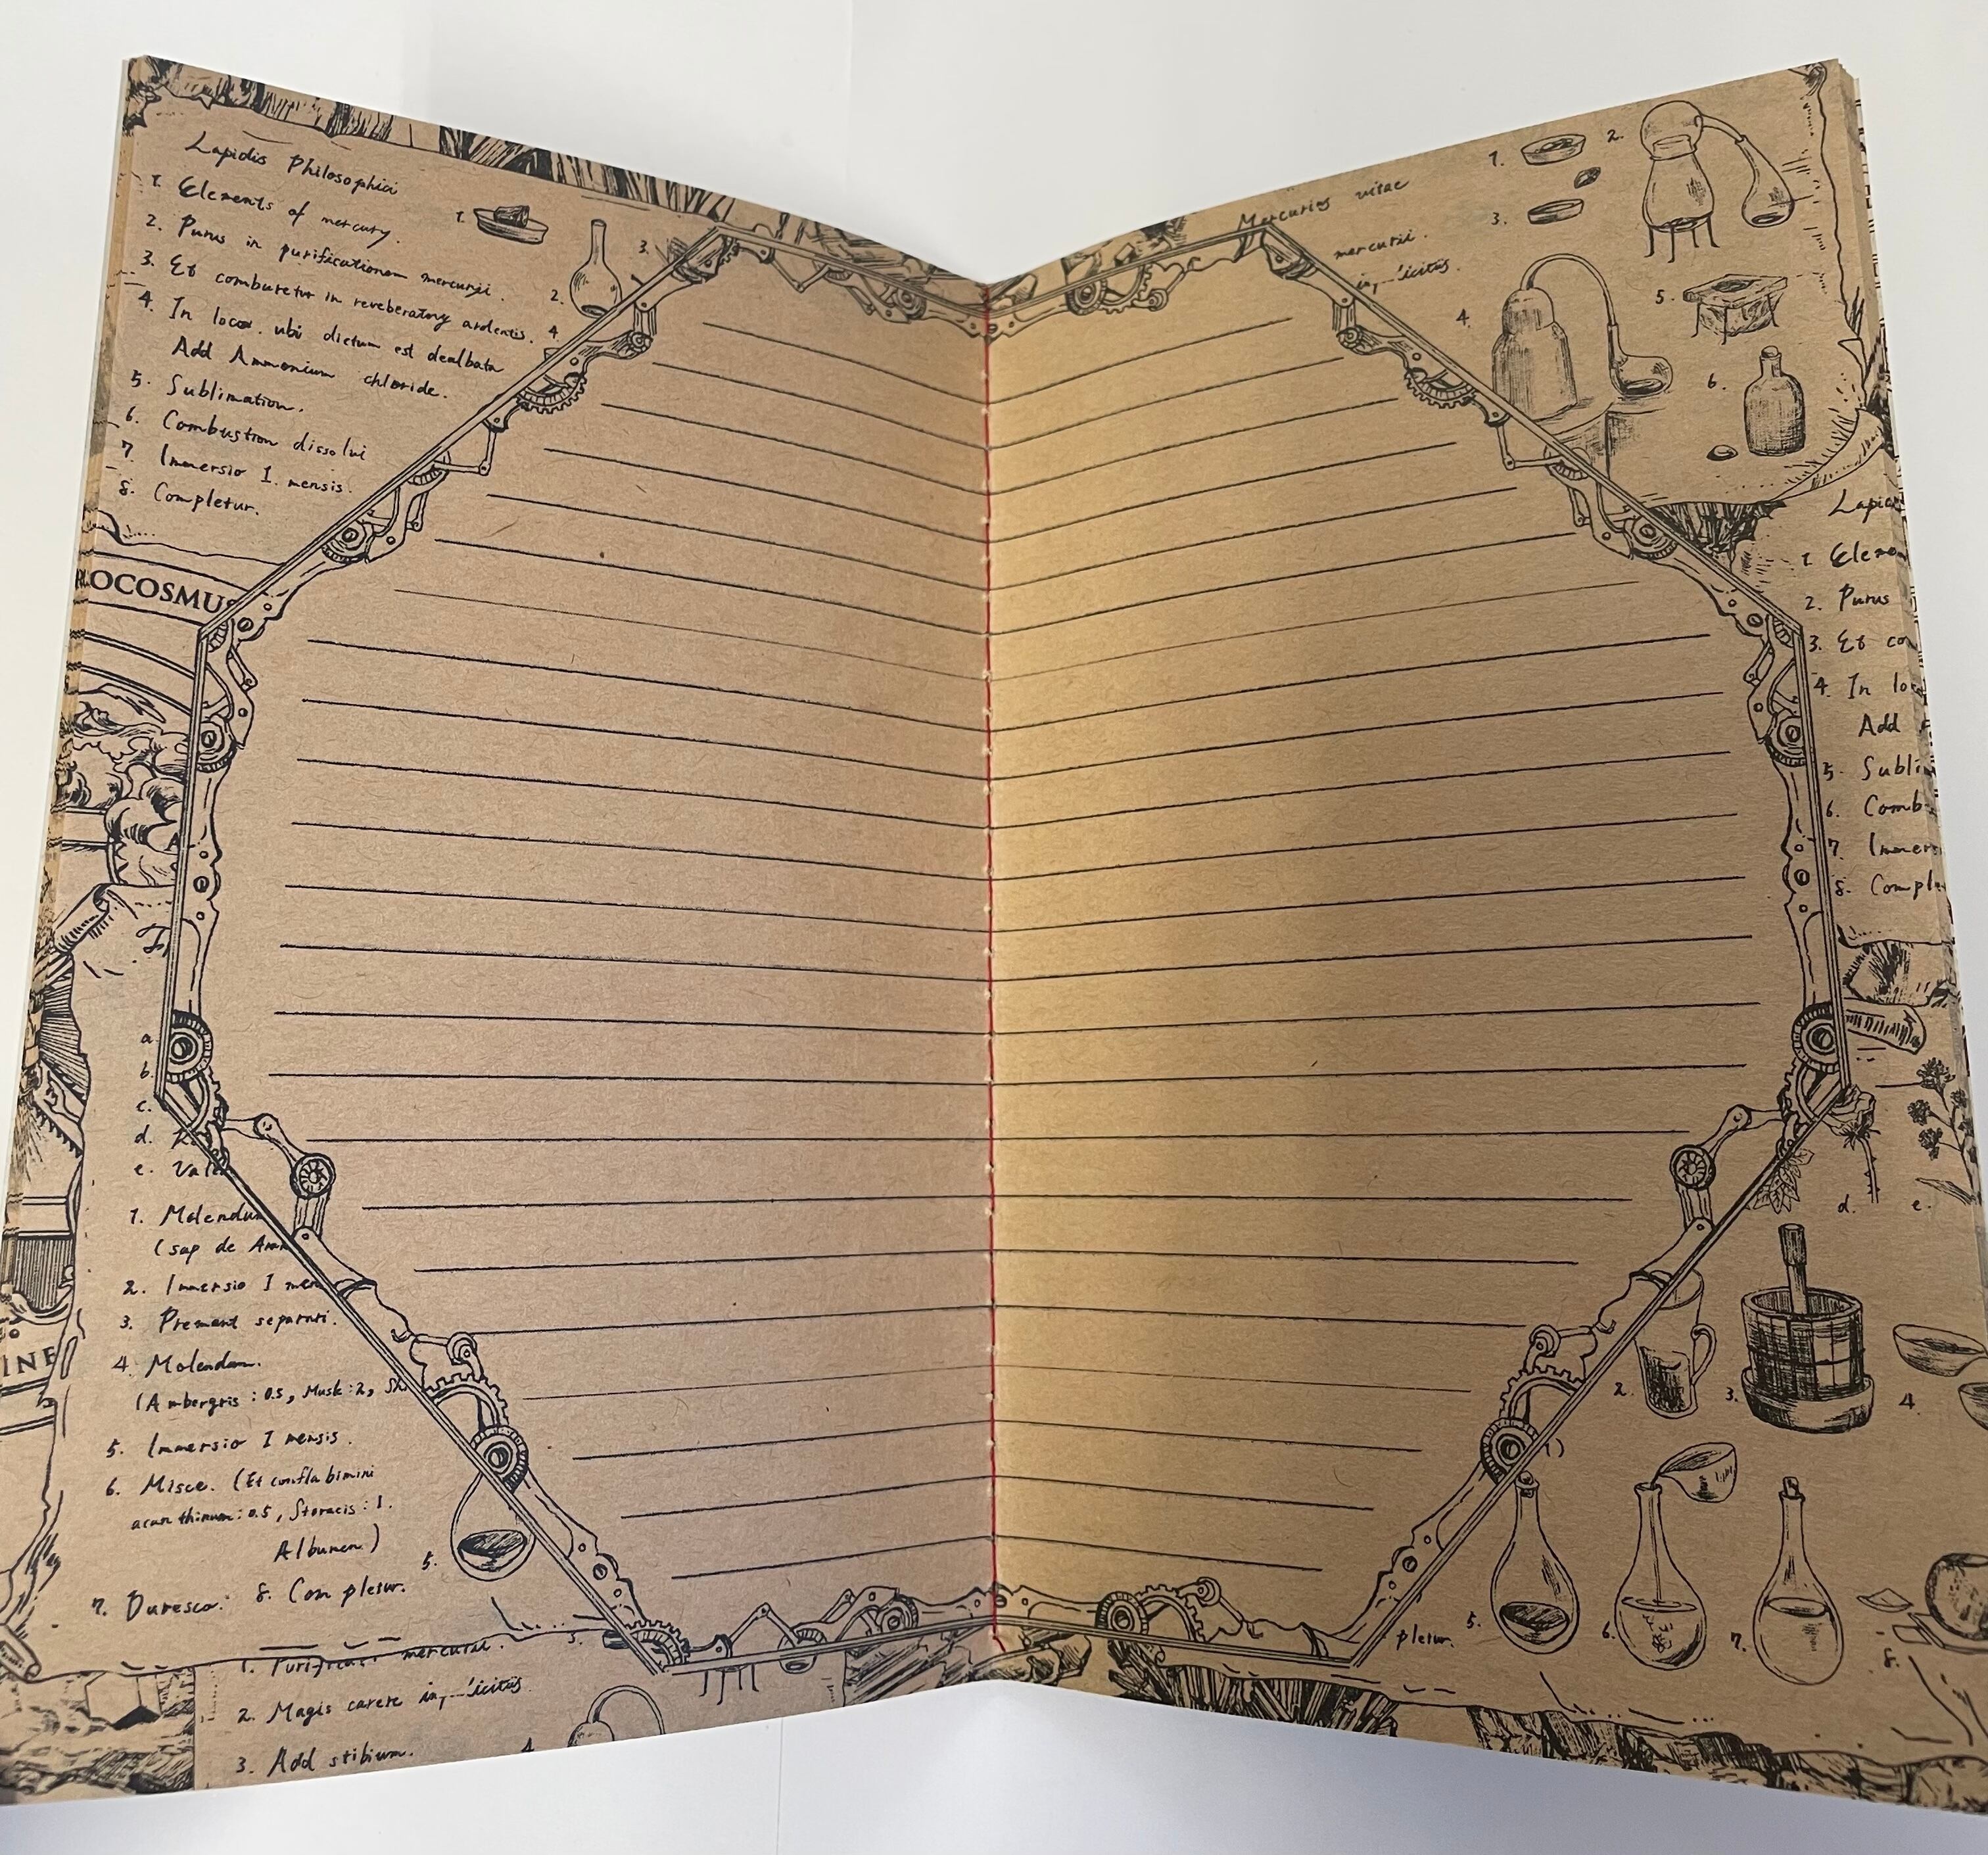 Lapidis Philosophici
1. Elements of mercury.
2. Purus in purificationem mercurii.
3. Et comburetur in reveberatory ardentis.
4. In loco. ubi dictum est dealbata
Add Ammonium chloride.
5. Sublimation.
6. Combustion dissolui
7. Immersio I. mensis.
8. Completur.
1.
2.
3.
4
OCOSMUS
a
b.
c.
d.
e. Vale
1. Molendum
(sap de
2. Immersio I men
3. Premant separari.
4 Molendam.
(Ambergris : 0.5, Musk : 2,
5. Immersio I mensis.
6. Misce. (Et confla bimini
acanthinum: 0.5, Storacis : 1.
Albumen)
7. Duresco. 8. Completur.
5.
INE
1. mercurii.
3.
2. Magis carere
3. Add stibium.
4
Mercurius vitae
mercurii.
1.
2.
3.
4.
5.
6.
Lapid
1. Eleme
2. Purus
3. Et co
4. In lo
Add
5. Subli
6. Comb
7. Immer
8. Comple
d.
e.
2.
3.
4.
pletur.
5.
6.
7.
8.